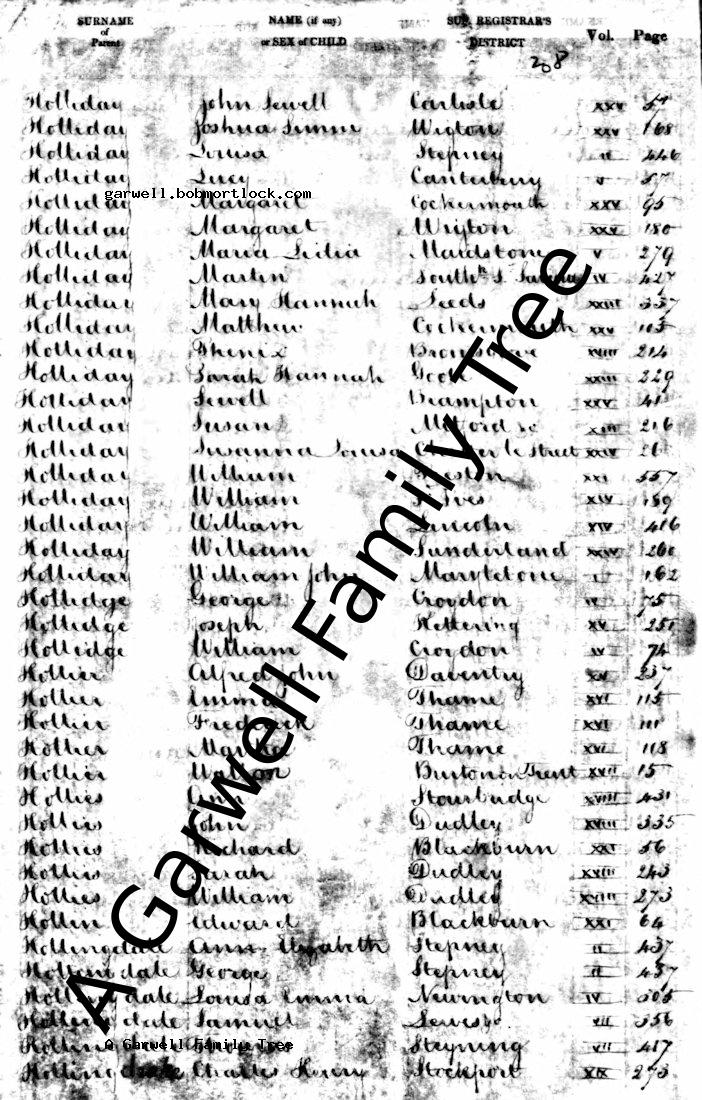 SURNAME of Parent NAME (if any) or SEX of CHILD SUB. REGISTRAR'S DISTRICT Vol. Page
208
Holliday John Sewell Carlisle XXV 57
Holliday Joshua Simm Wigton XXV 168
Holliday Louisa Stepney II 446
Holliday Lucy Canterbury V 57
garwell.bobmortlock.com
Holliday Margaret Cockermouth XXV 95
Holliday Margaret Wigton XXV 180
Holliday Maria Maidstone V 279
Holliday Martin IV 427
Holliday Mary Hannah Leeds XXIII 337
Holliday Matthew Cockermouth XXV 103
Holliday Phenix Bromsgrove XVIII 214
Holliday Sarah Hannah Goole XXIII 329
Holliday Sewell Brampton XXV 41
Holliday Susan XIII 216
Holliday Susanna Louisa Chester le Street XXIV 26
Holliday William Preston XXI 557
Holliday William St Ives XIV 189
Holliday William Lincoln XIV 416
Holliday William Sunderland XXIV 260
Holliday William John Marylebone I 162
Hollidge George Croydon IV 75
Hollidge Joseph Kettering XV 251
Hollidge William Croydon IV 74
Hollier Alfred John Daventry XV 237
Hollier Emma Thame XVI 115
Hollier Frederick Thame XVI 111
Hollier Martha Thame XVI 118
Hollier Burton on Trent XVII 15
Hollies Ann Stourbridge XVIII 431
Hollies John Dudley XVIII 335
Hollies Richard Blackburn XXI 56
Hollies Sarah Dudley XVIII 243
Hollies William Dudley XVIII 273
Hollin Edward Blackburn XXI 64
Hollingdale Ann Elizabeth Stepney II 437
Hollingdale George Stepney II 437
Hollingdale Louisa Emma Newington IV 305
Hollingdale Samuel Lewes VII 356
Steyning VII 417
A Garwell Family Tree
Charles Henry Stockport XIX 273
A Garwell Family Tree